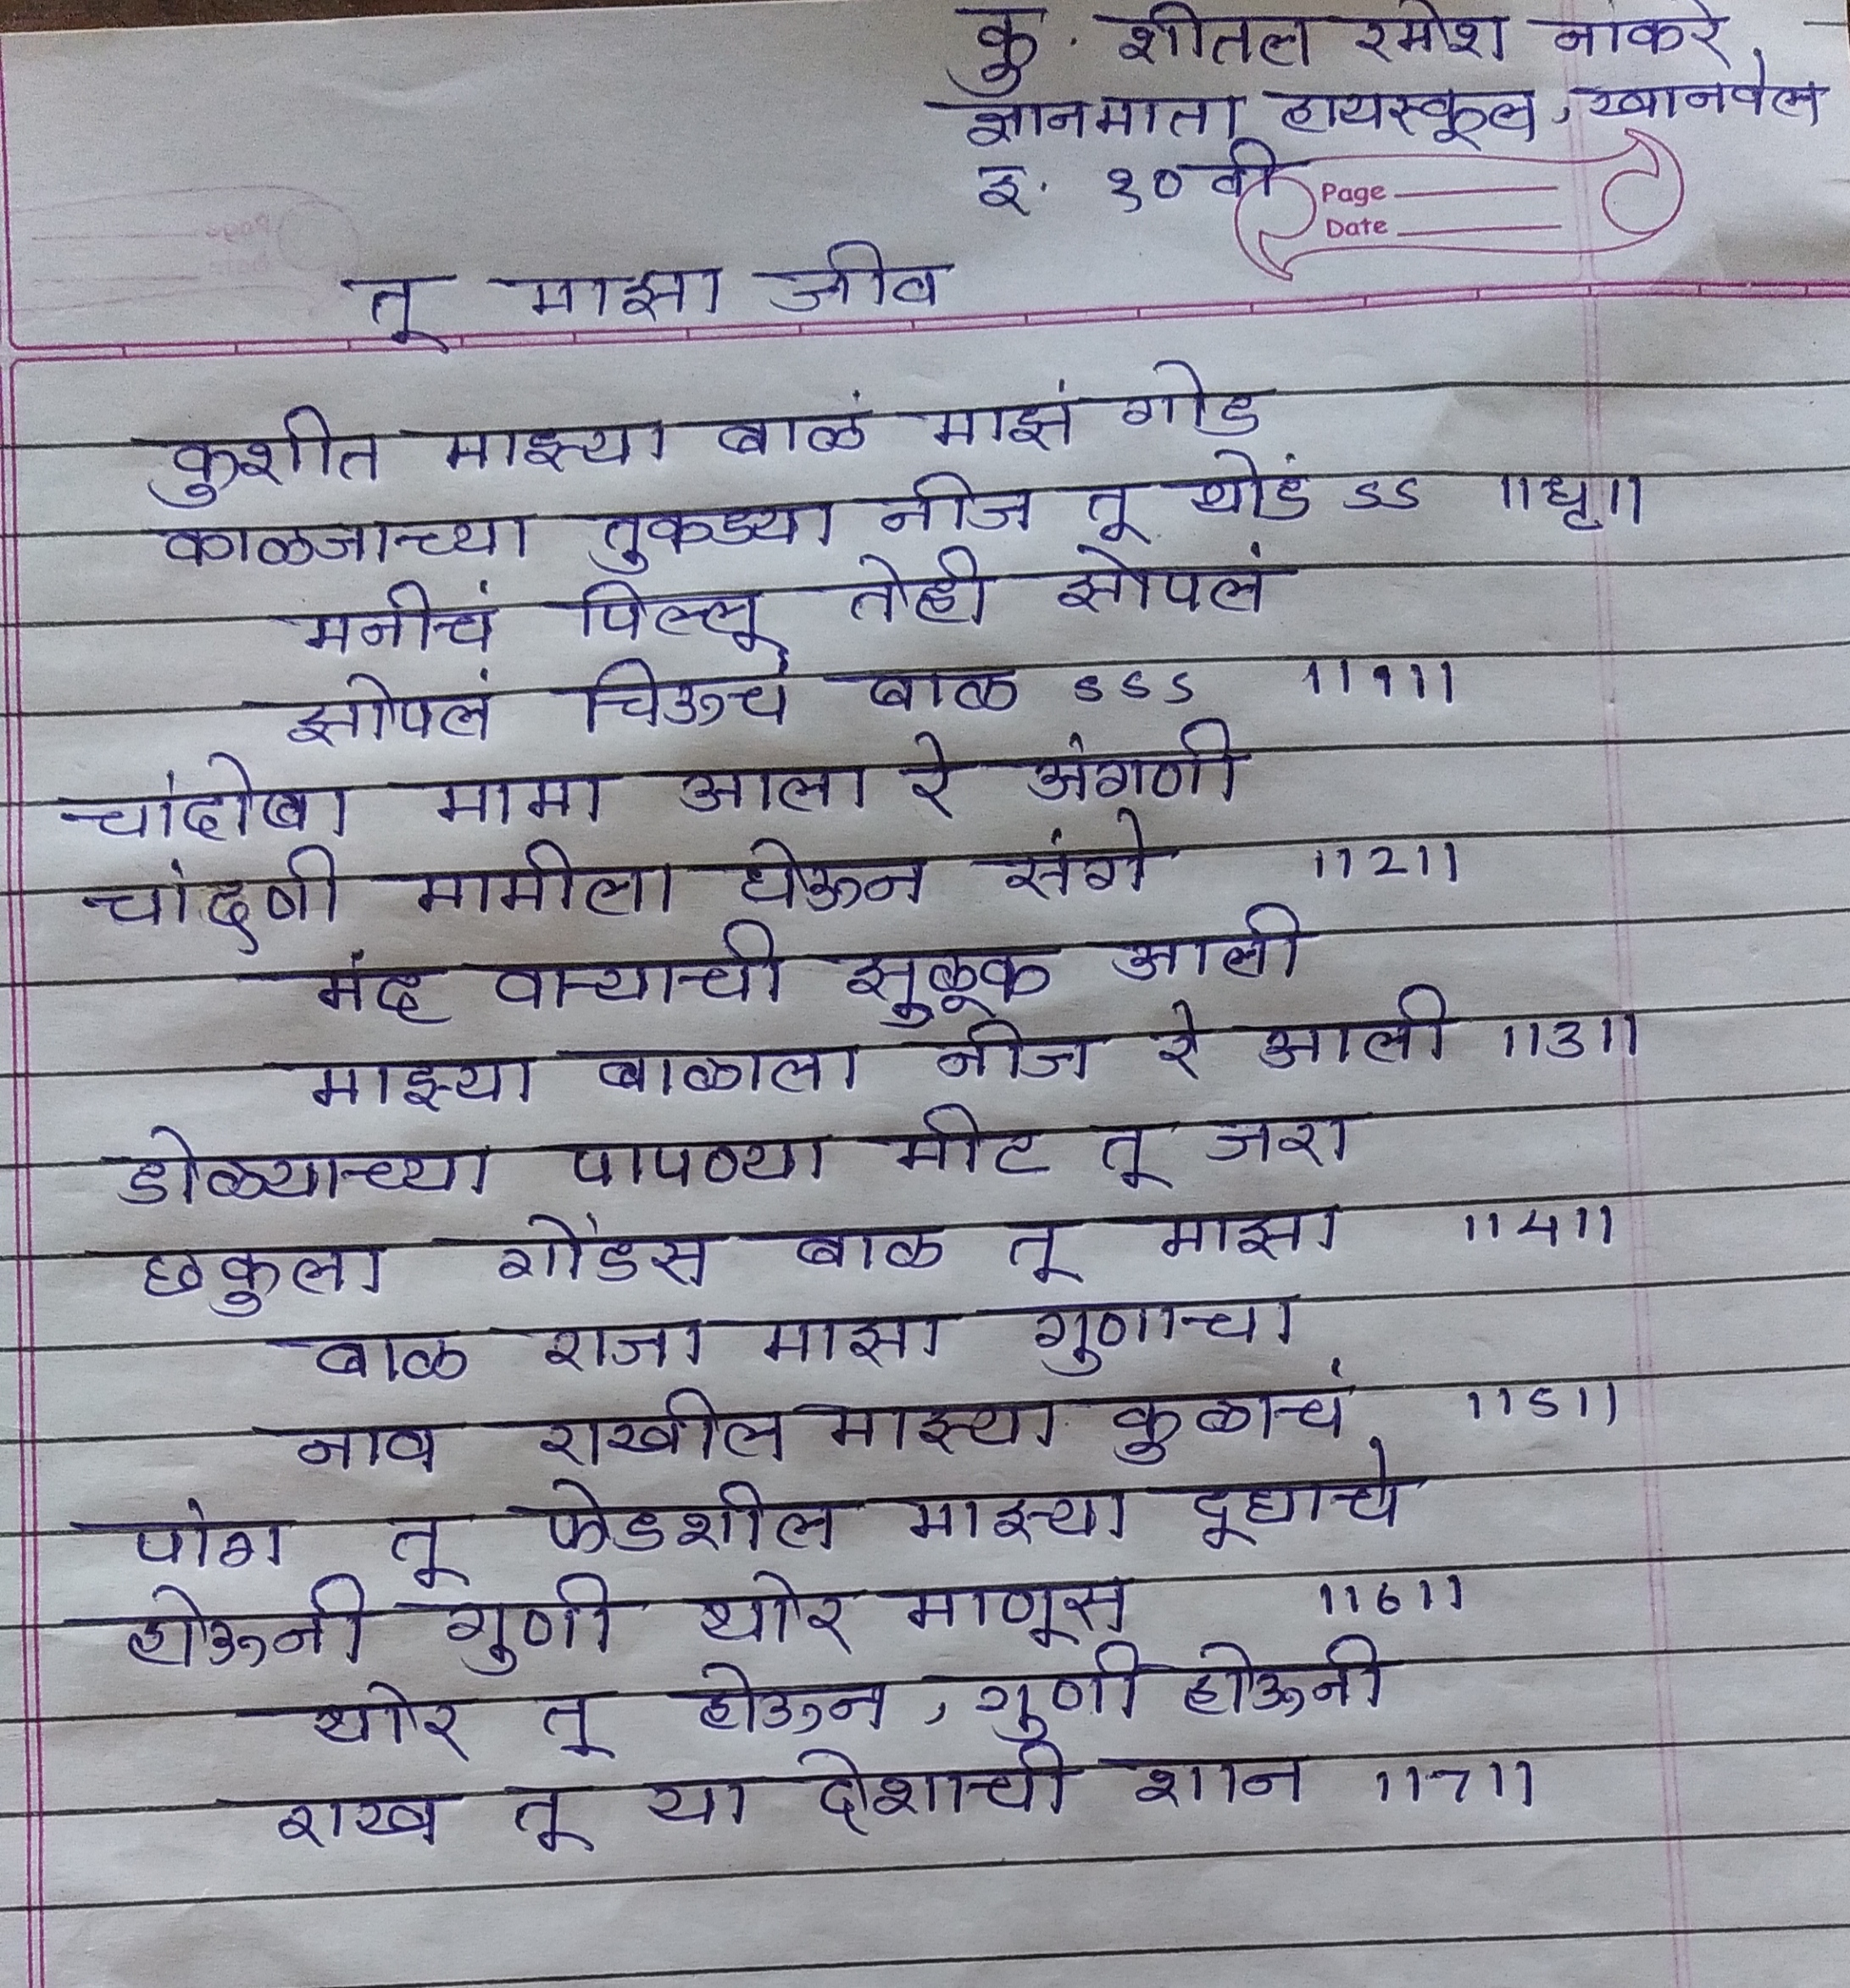 कु. शीतल रमेश नाकरे,
ज्ञानमाता हायस्कूल, खानवेल
इ. १० वी
Page
Date
तू माझा जीव
कुशीत माझ्या बाळं माझं गोड
काळजाच्या तुकड्या नीज तू थोडं ऽऽ ॥धृ॥
मनीचं पिल्लू तेही झोपलं
झोपलं चिऊचं बाळ ऽऽऽ ॥१॥
चांदोबा मामा आला रे अंगणी
चांदणी मामीला घेऊन संगे ॥2॥
मंद वाऱ्याची झुळूक आली
माझ्या बाळाला नीज रे आली ॥3॥
डोळ्याच्या पापण्या मीट तू जरा
छकुला गोंडस बाळ तू माझा ॥4॥
बाळ राजा माझा गुणाचा
नाव राखील माझ्या कुळाचं ॥5॥
पांग तू फेडशील माझ्या दूधाचे
होऊनी गुणी थोर माणूस ॥6॥
थोर तू होऊन, गुणी होऊनी
राख तू या देशाची शान ॥7॥